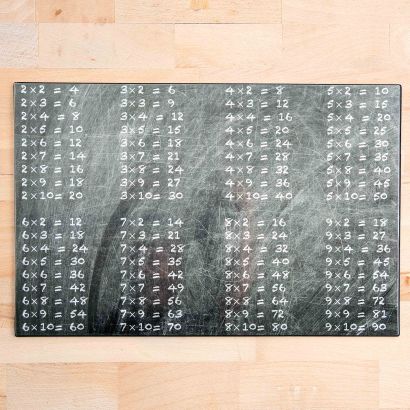 2×2 = 4
2×3 = 6
2×4 = 8
2×5 = 10
2×6 = 12
2×7 = 14
2×8 = 16
2×9 = 18
2×10= 20
3×2 = 6
3×3 = 9
3×4 = 12
3×5 = 15
3×6 = 18
3×7 = 21
3×8 = 24
3×9 = 27
3×10= 30
4×2 = 8
4×3 = 12
4×4 = 16
4×5 = 20
4×6 = 24
4×7 = 28
4×8 = 32
4×9 = 36
4×10= 40
5×2 = 10
5×3 = 15
5×4 = 20
5×5 = 25
5×6 = 30
5×7 = 35
5×8 = 40
5×9 = 45
5×10= 50
6×2 = 12
6×3 = 18
6×4 = 24
6×5 = 30
6×6 = 36
6×7 = 42
6×8 = 48
6×9 = 54
6×10= 60
7×2 = 14
7×3 = 21
7×4 = 28
7×5 = 35
7×6 = 42
7×7 = 49
7×8 = 56
7×9 = 63
7×10= 70
8×2 = 16
8×3 = 24
8×4 = 32
8×5 = 40
8×6 = 48
8×7 = 56
8×8 = 64
8×9 = 72
8×10= 80
9×2 = 18
9×3 = 27
9×4 = 36
9×5 = 45
9×6 = 54
9×7 = 63
9×8 = 72
9×9 = 81
9×10= 90